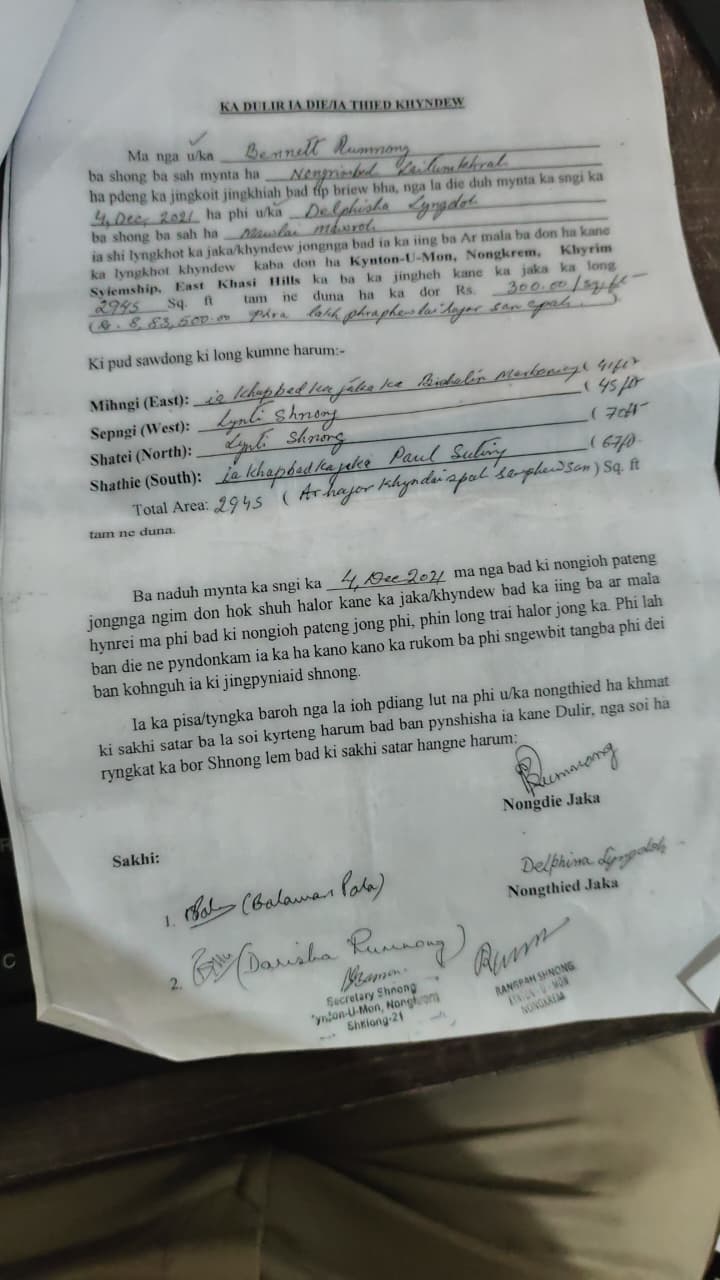 KA DULIR IA DIE/IA THIED KHYNDEW
Ma nga u/ka Bennett Rumnong
ba shong ba sah mynta ha Nongrimbah Laitumkhrah
ha pdeng ka jingkoit jingkhiah bad tip briew bha, nga la die duh mynta ka sngi ka
4, Dec, 2021 ha phi u/ka Delphisha Lyngdoh
ba shong ba sah ha Mawlai Mawroh
ia shi lyngkhot ka jaka/khyndew jongnga bad ia ka iing ba Ar mala ba don ha kane
ka lyngkhot khyndew kaba don ha Kynton-U-Mon, Nongkrem, Khyrim
Syiemship, East Khasi Hills ka ba ka jingheh kane ka jaka ka long
2945 Sq. ft tam ne duna ha ka dor Rs. 300.00/sq.ft
8,83,500.00 phra lakh hajar san spah
Ki pud sawdong ki long kumne harum:-
Mihngi (East): ia khapbad ka jaka ka ( 41ft
Sepngi (West): Lynti Shnong ( 45ft
Shatei (North): Lynti Shnong ( 70ft
Shathie (South): ia khapbad ka jaka Paul Suting ( 67ft.
Total Area: 2945 ( Ar hajar khyndai spah sanphew san ) Sq. ft
tam ne duna.
Ba naduh mynta ka sngi ka 4, Dec 2021 ma nga bad ki nongioh pateng
jongnga ngim don hok shuh halor kane ka jaka/khyndew bad ka iing ba ar mala
hynrei ma phi bad ki nongioh pateng jong phi, phin long trai halor jong ka. Phi lah
ban die ne pyndonkam ia ka ha kano kano ka rukom ba phi sngewbit tangba phi dei
ban kohnguh ia ki jingpyniaid shnong.
Ia ka pisa/tyngka baroh nga la ioh pdiang lut na phi u/ka nongthied ha khmat
ki sakhi satar ba la soi kyrteng harum bad ban pynshisha ia kane Dulir, nga soi ha
ryngkat ka bor Shnong lem bad ki sakhi satar hangne harum:
Rumnong
Nongdie Jaka
Sakhi:
Delphina Lyngdoh
Nongthied Jaka
1. (Balawan Pala)
2. (Darisha Rumnong)
Secretary Shnong
Kynton-U-Mon, Nongkrem
Shklong-21
RANGBAH SHNONG
KYNTON-U-MON
NONGKREM